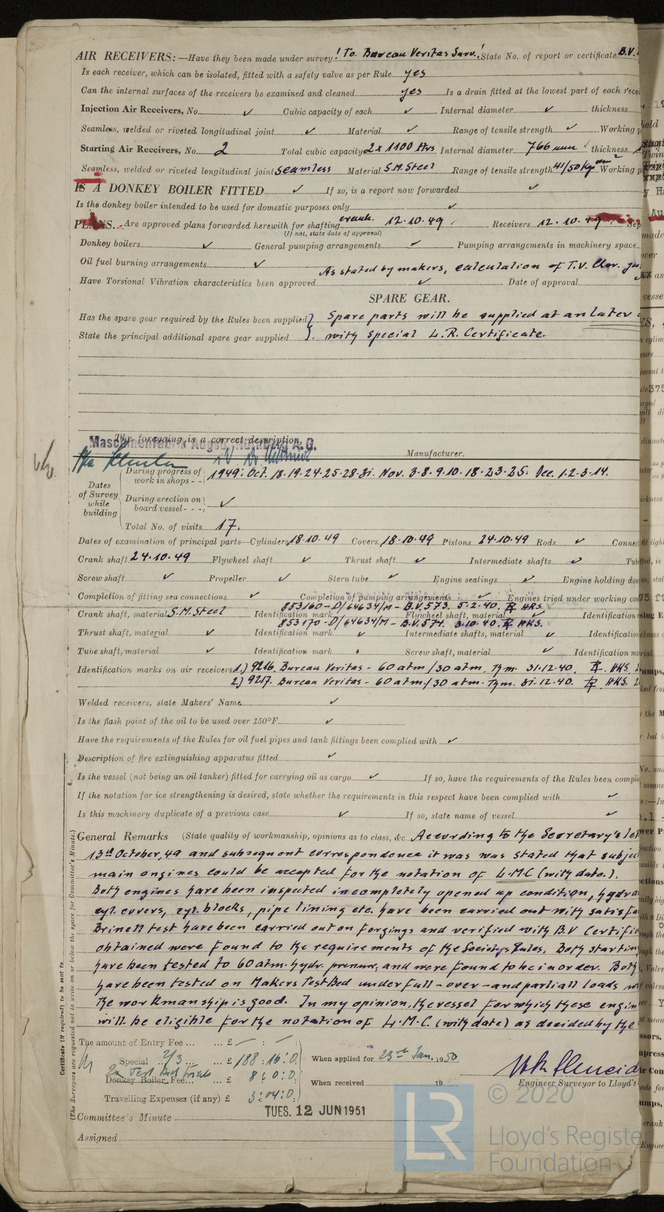 AIR RECEIVERS:—Have they been made under survey ! To Bureau Veritas Surv.! State No. of report or certificate B.V.
Is each receiver, which can be isolated, fitted with a safety valve as per Rule yes
Can the internal surfaces of the receivers be examined and cleaned yes Is a drain fitted at the lowest part of each rece
Injection Air Receivers, No. ✓ Cubic capacity of each ✓ Internal diameter ✓ thickness
Seamless, welded or riveted longitudinal joint ✓ Material ✓ Range of tensile strength ✓ Working p
Starting Air Receivers, No. 2 Total cubic capacity 2x1100 ltrs Internal diameter 766 mm thickness
Seamless, welded or riveted longitudinal joint seamless Material S.M.Steel Range of tensile strength 41/50 kg mm² Working p
IS A DONKEY BOILER FITTED ✓ If so, is a report now forwarded ✓
Is the donkey boiler intended to be used for domestic purposes only ✓
PLANS. Are approved plans forwarded herewith for shafting crank. 12.10.49. Receivers 12.10.49 Sep
(If not, state date of approval)
Donkey boilers ✓ General pumping arrangements ✓ Pumping arrangements in machinery space
Oil fuel burning arrangements ✓
As stated by makers, calculation of T.V.
Have Torsional Vibration characteristics been approved ✓ Date of approval
SPARE GEAR.
Has the spare gear required by the Rules been supplied } Spare parts will be supplied at an later
State the principal additional spare gear supplied } with special L.R. Certificate.
The foregoing is a correct description,
Manufacturer.
Dates of Survey while building
During progress of work in shops - - 1949: Oct. 18.19.24.25.28.31. Nov. 3.8.9.10.18.23.25. Dec. 1.2.3.14.
During erection on board vessel - - - ✓
Total No. of visits 17.
Dates of examination of principal parts—Cylinders 18.10.49 Covers 18.10.49 Pistons 24.10.49 Rods ✓ Conne
Crank shaft 24.10.49 Flywheel shaft ✓ Thrust shaft ✓ Intermediate shafts ✓ Tub
Screw shaft ✓ Propeller ✓ Stern tube ✓ Engine seatings ✓ Engine holding do
Completion of fitting sea connections ✓ Completion of pumping arrangements ✓ Engines tried under working co
Crank shaft, material S.M.Steel Identification mark 853160-D/64634/M-B.V.573. 5.2.40. HKS. Flywheel shaft, material Identification
853170-D/64634/M-B.V.574. 3.10.40. HKS.
Thrust shaft, material ✓ Identification mark ✓ Intermediate shafts, material ✓ Identification
Tube shaft, material ✓ Identification mark Screw shaft, material ✓ Identification
Identification marks on air receivers 1.) 9216. Bureau Veritas - 60 atm/30 atm. 31.12.40. HKS.
2.) 9217. Bureau Veritas - 60 atm/30 atm. 31.12.40. HKS.
Welded receivers, state Makers' Name ✓
Is the flash point of the oil to be used over 150°F. ✓
Have the requirements of the Rules for oil fuel pipes and tank fittings been complied with ✓
Description of fire extinguishing apparatus fitted ✓
Is the vessel (not being an oil tanker) fitted for carrying oil as cargo ✓ If so, have the requirements of the Rules been compli
If the notation for ice strengthening is desired, state whether the requirements in this respect have been complied with ✓
Is this machinery duplicate of a previous case ✓ If so, state name of vessel ✓
General Remarks (State quality of workmanship, opinions as to class, &c. According to the Secretary's let
13th October, 49 and subsequent correspondence it was was stated that subje
main engines could be accepted for the notation of L.M.C (with date.).
Both engines have been inspected in completely opened up condition, hydra
cyl. covers, cyl. blocks, pipe lining etc. have been carried out with satisfa
Brinell test have been carried out on forgings and verified with B.V Certifi
obtained were found to the requirements of the Society's Rules. Both startin
have been tested to 60 atm. hydr. pressure, and were found to be in order. Both
have been tested on Makers Testbed under full-over- and partial loads
the workmanship is good. In my opinion, the vessel for which these engin
will be eligible for the notation of L.M.C. (with date) as decided by the
The amount of Entry Fee ... £ — : — :
Special 2/3 ... £ 188:16:0
Donkey Boiler Fee ... £ 8:0:0
Travelling Expenses (if any) £ 3:04:0
When applied for 23rd Jan. 1950
When received 19
Engineer Surveyor to Lloyd's
Committee's Minute TUES. 12 JUN 1951
Assigned
Certificate (if required) to be sent to
(The Surveyors are requested not to write on or below the space for Committee's Minute.)
© 2020
LR
Lloyd's Register
Foundation